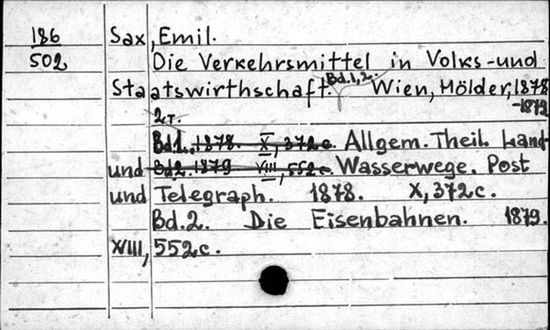 186 Sax, Emil.
502 Die Verkehrsmittel in Volks-und
Staatswirthschaft. Bd.1,2. Wien, Hölder, 1878
-1879
2т.
Bd.1. 1878. X, 372c. Allgem. Theil. Land
und Bd.2. 1879 VIII, 552c. Wasserwege. Post
und Telegraph. 1878. X, 372c.
Bd.2. Die Eisenbahnen. 1879.
XVIII, 552c.